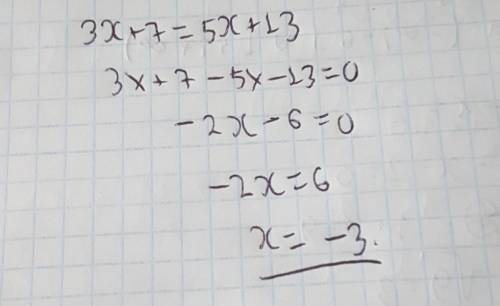 3x+7=5x+13
3x+7-5x-13=0
-2x-6=0
-2x=6
x= -3.